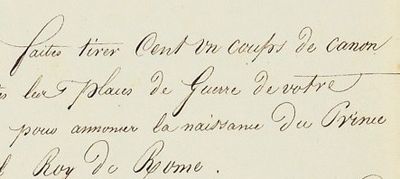 faites tirer Cent un coups de canon
les places de Guerre de votre
pour annoncer la naissance du Prince
Roy de Rome.